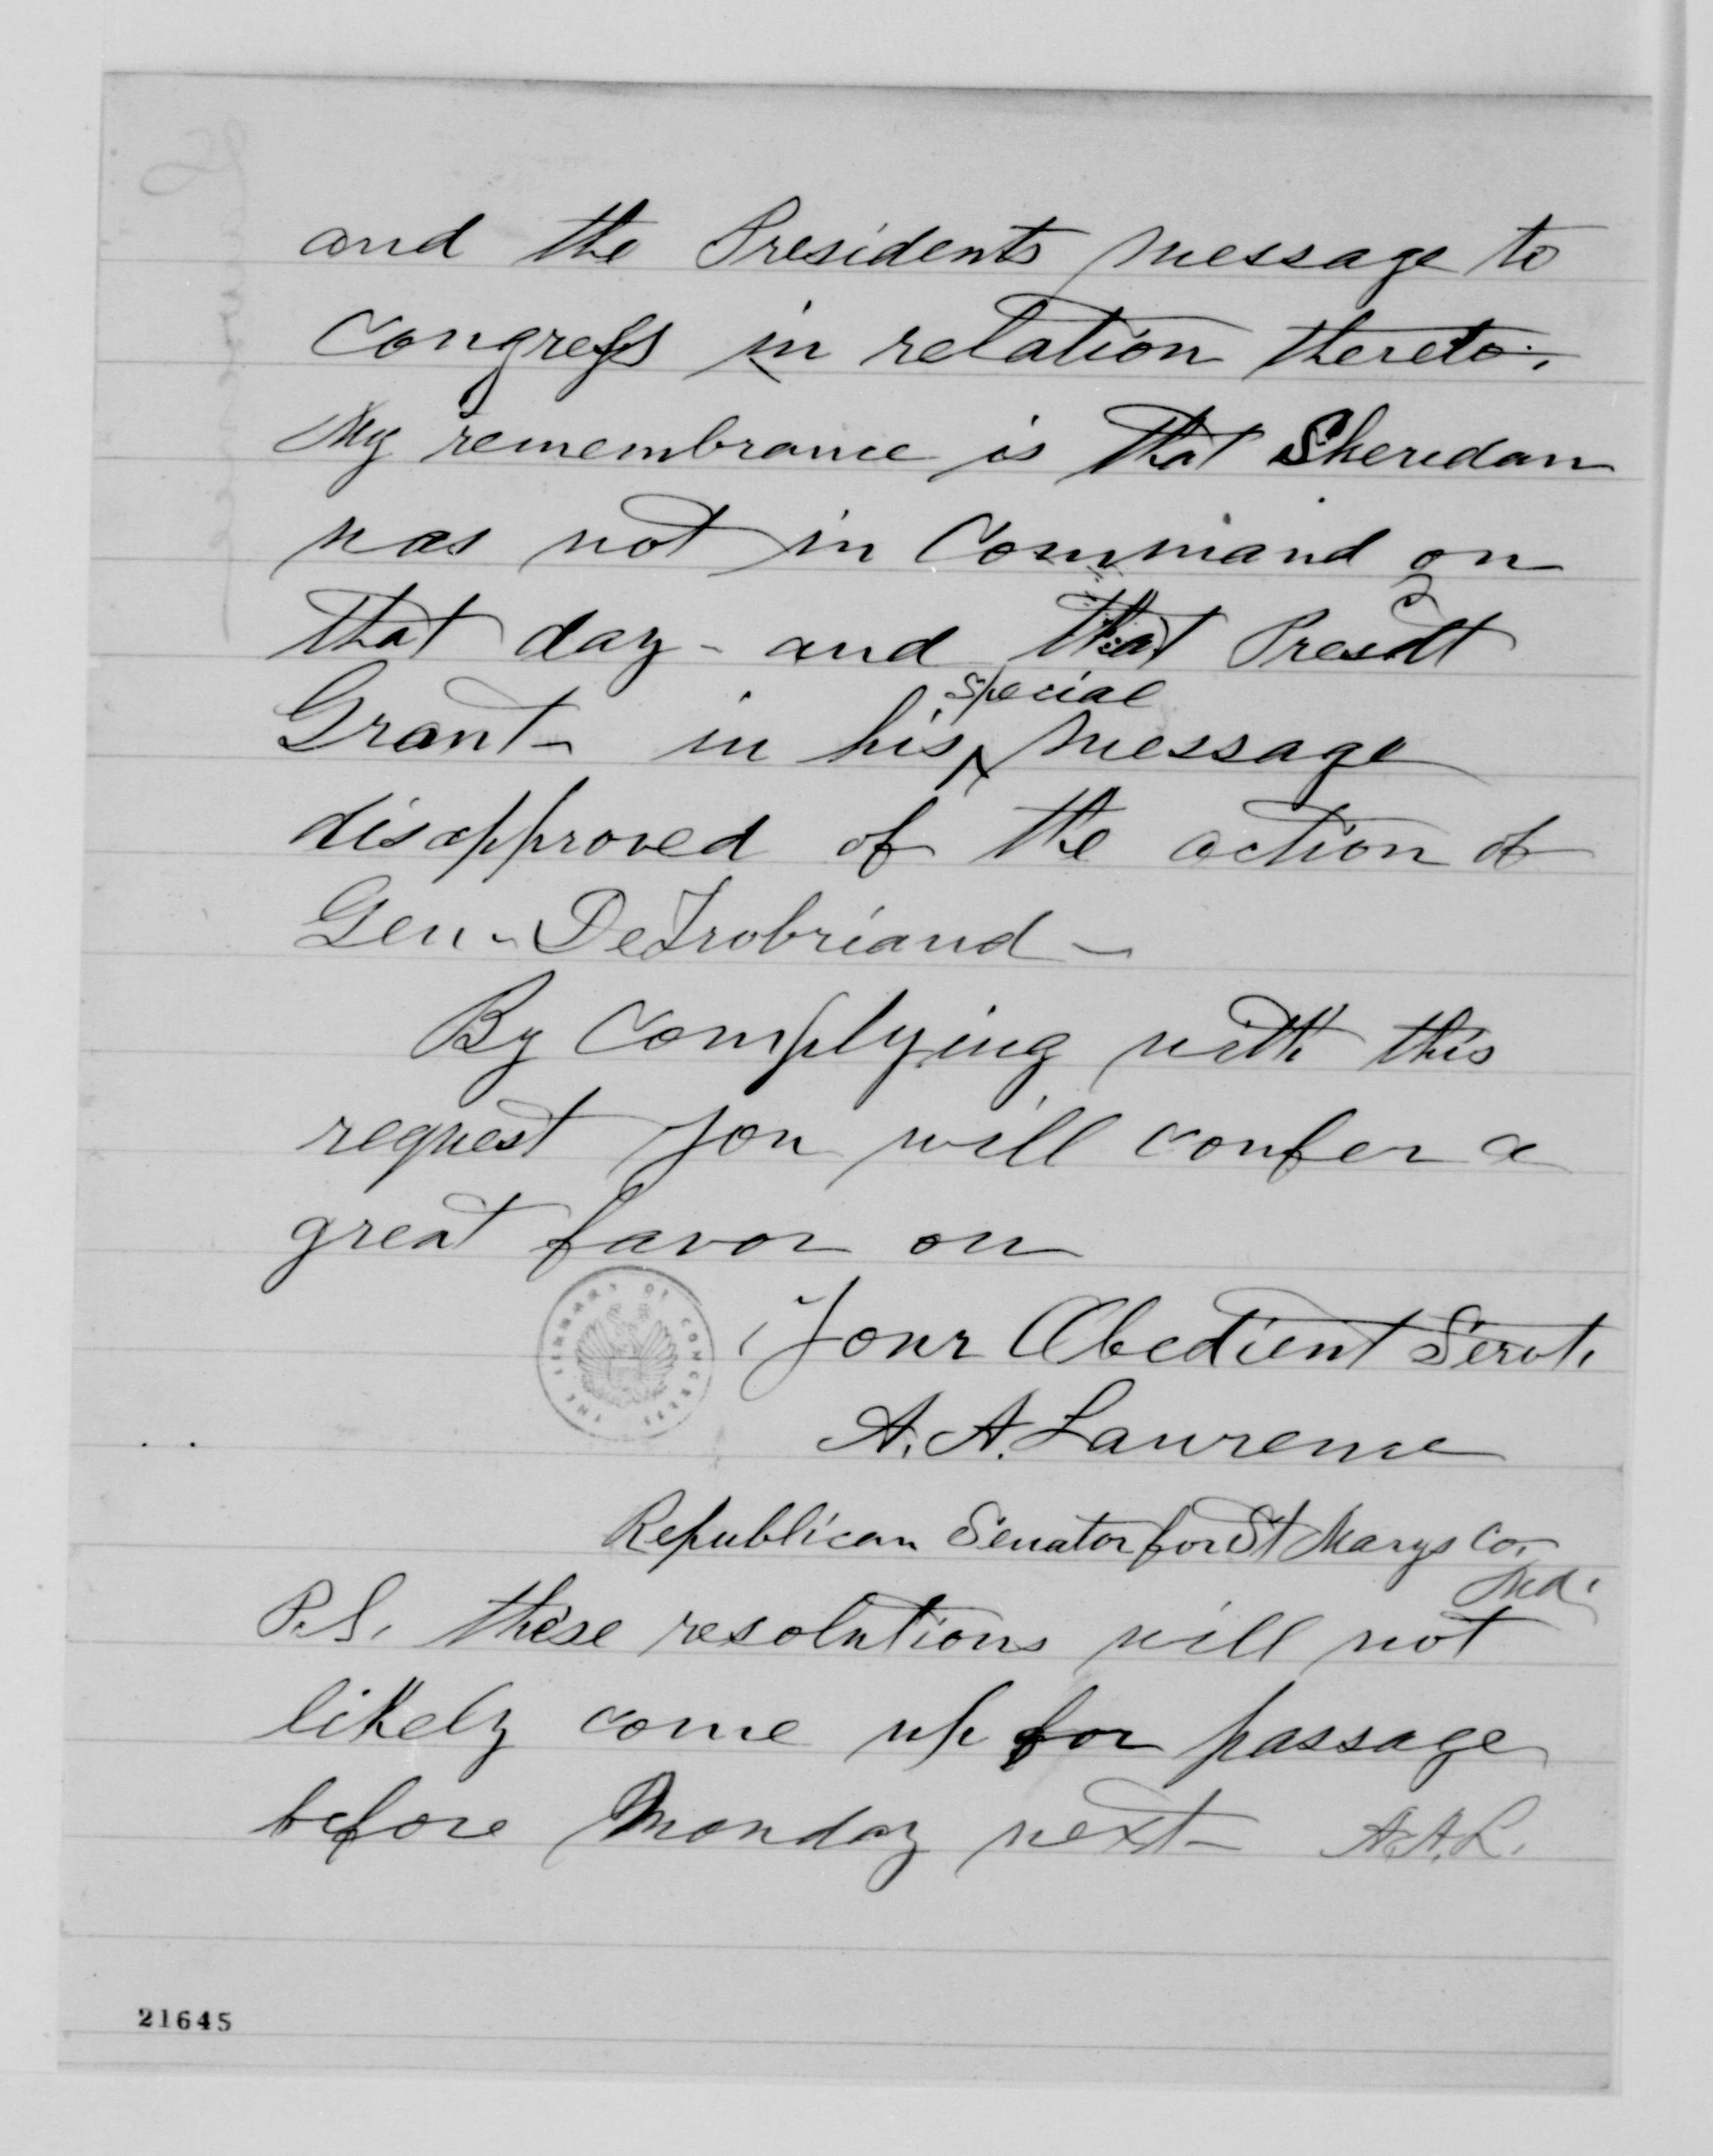 and the Presidents message to
Congress in relation thereto.
My remembrance is that Sheredan
was not in Command on
that day - and that Presidt
Grant - in his special message
disapproved of the action of
Gen - DeTrobriand -
By Complying with this
request you will confer a
great favor on
Your Obedient Servt.
A. A. Lawrence
Republican Senator for St Marys Co.
Md.
P.S. these resolutions will not
likely come up for passage
before Monday next - A.A.L.
THE LIBRARY OF CONGRESS
21645